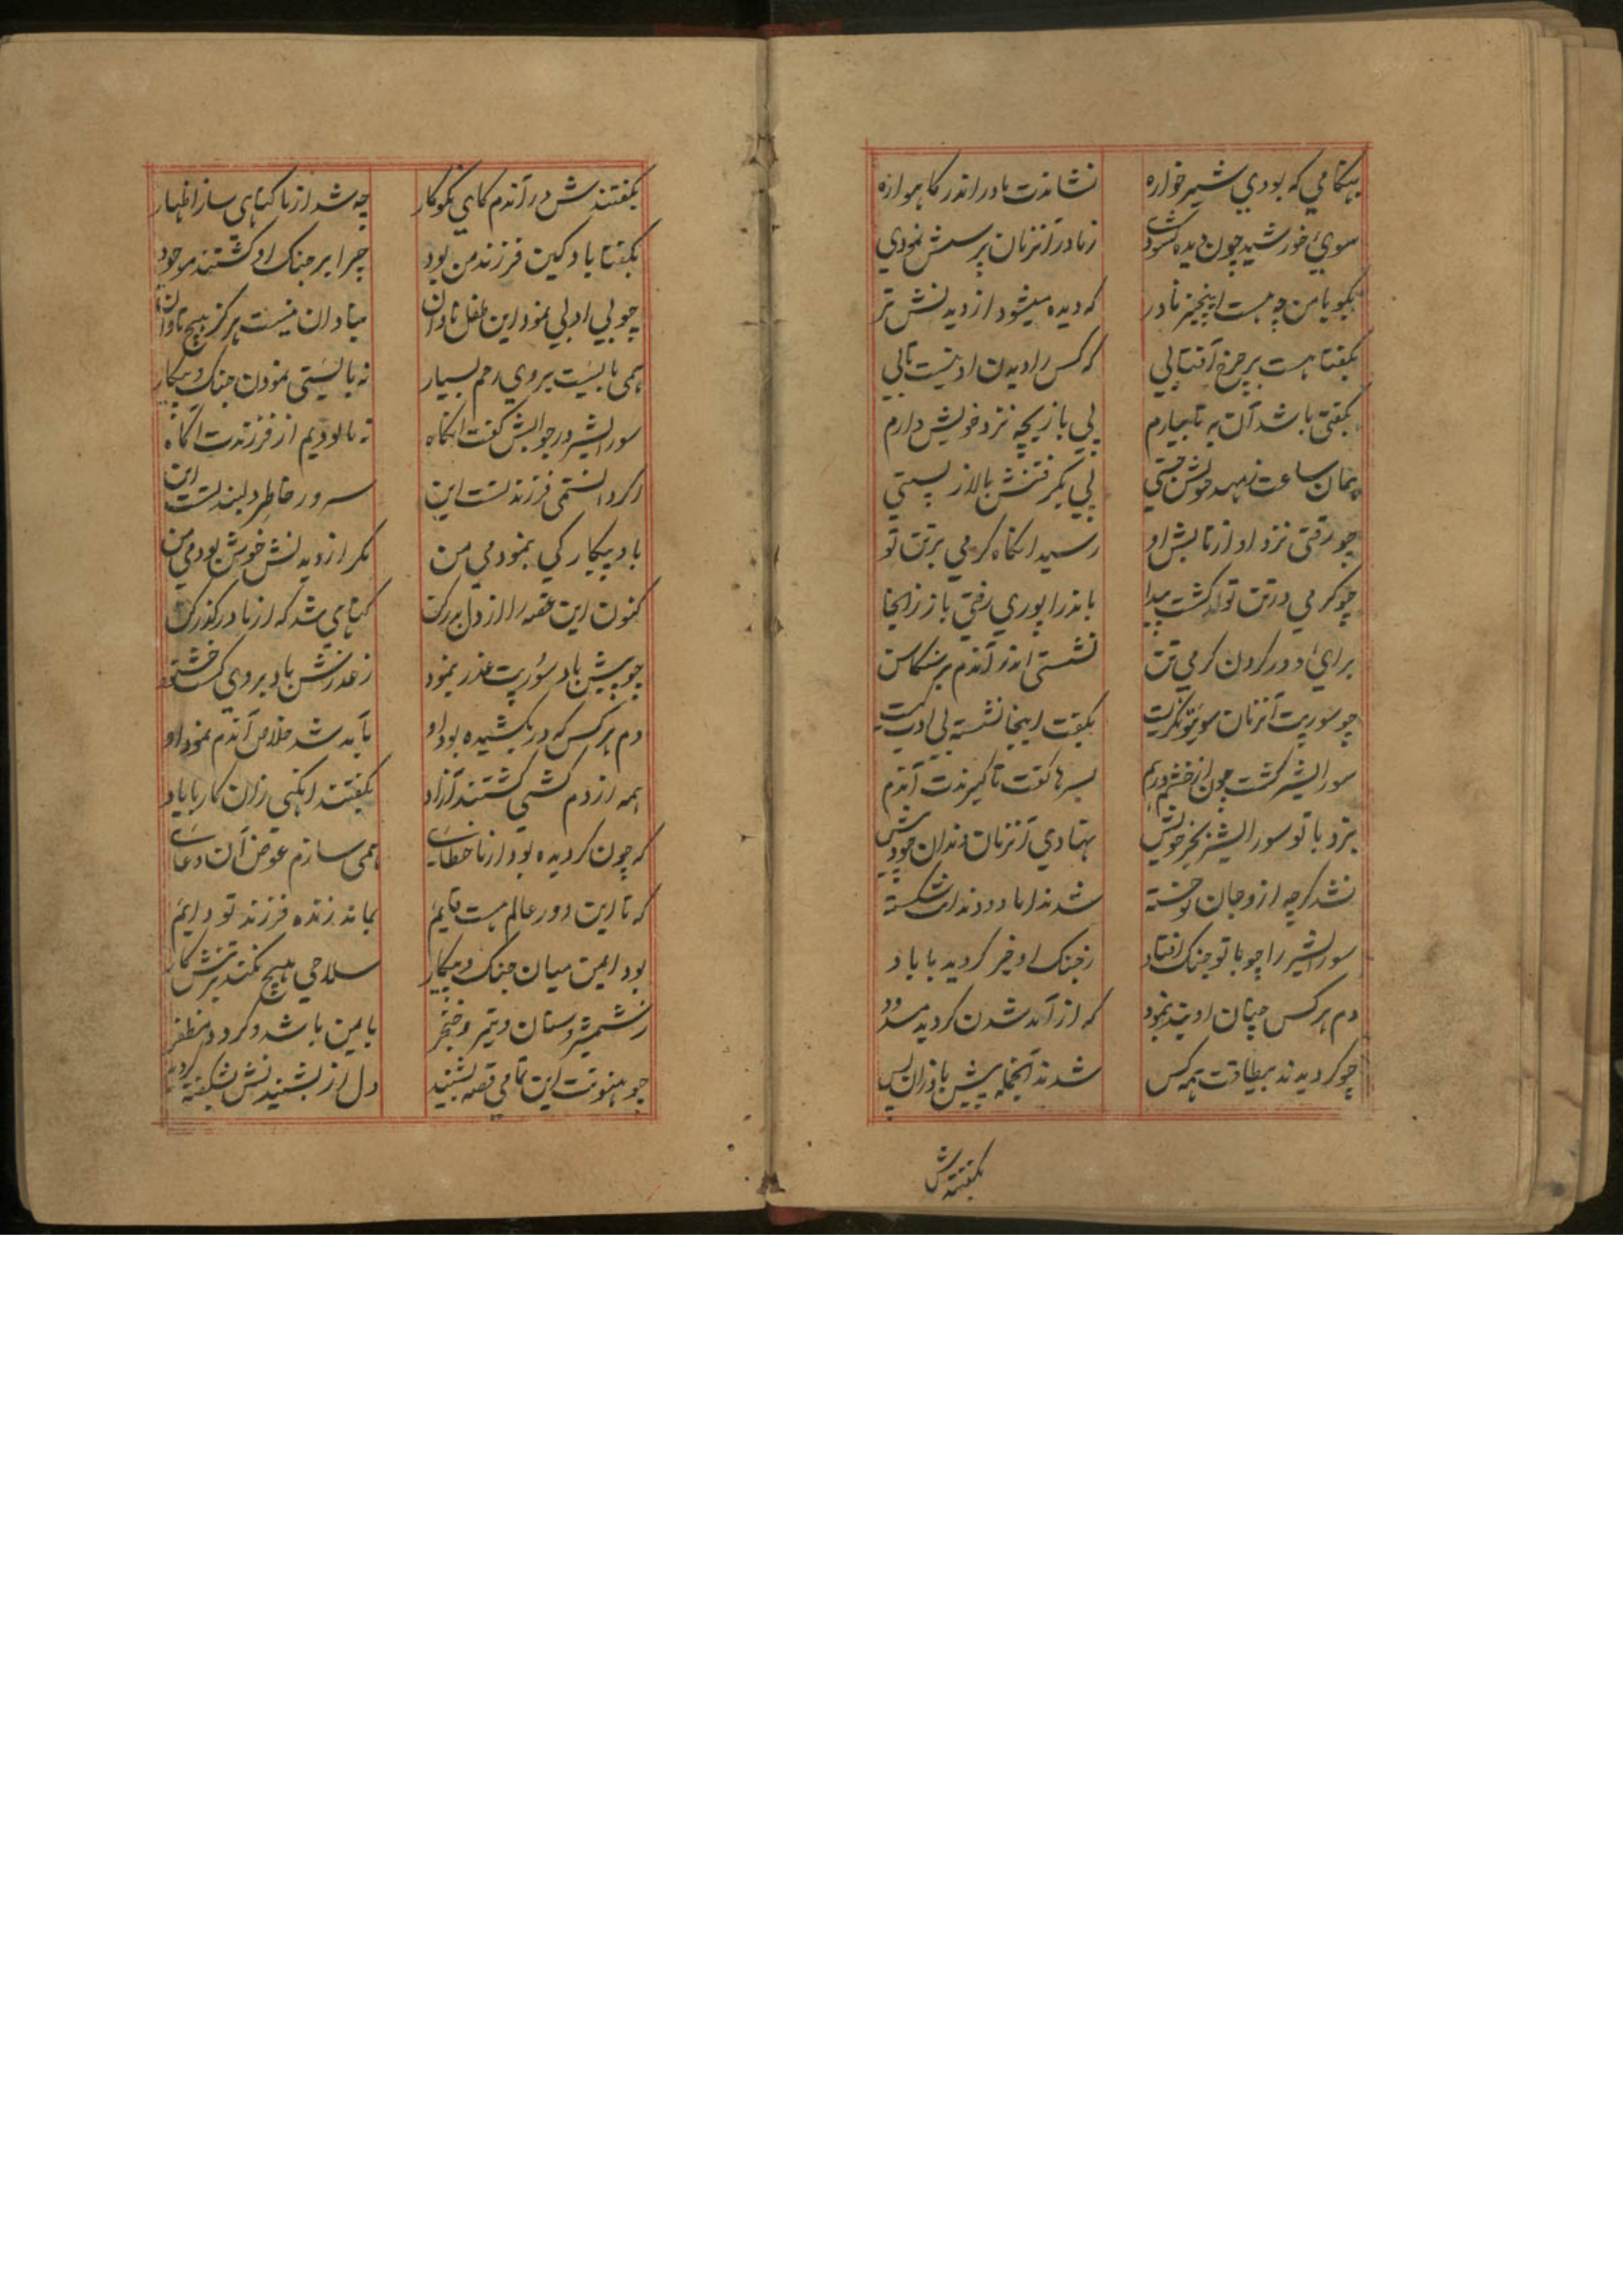 بهنکامی که بودی شیر خواره نشاندت مادر اندر کاهواره
سوی خورشید چون دیده کشودی ز مادر آنزمان پرسش نمودی
بکو با من چه هست اینچیز نادر که دیده میشود از دیدنش تر
بکفتا هست بر چرخ آفتابی که کس را دیدن او نیست تابی
بکفتی باشد آن به تا بیارم پی بازیچه نزد خویش دارم
همان ساعت ز مهد خویش جستی پی بکرفتنش بالا ز پستی
چو رفتی نزد او از تابش او رسید انکاه کرمی بر تن تو
چو کرمی در تن تو کشت پیدا باندرا پوری رفتی باز زانجا
برای دور کردن کرمی تن نشستی اندر آندم بر
چو سوریت آنزمان سویتو نکریست بکفت اینجا نشسته بی ادب کیست
سورالیشر کشت چون از خشم درهم بسرها کفت تا کیرندت آندم
بزد با تو سورالیشر بجر خویش نهادی آنزمان دندان خود پیش
نشد کرچه ازو جان تو خسته شد اما دو دندانت شکسته
سورالیشر را چو با تو جنک افتاد ز جنک او خبر کردید با باد
دم هر کس چنان او بند بنمود که از آمد شدن کردید مسدود
چو کردیدند بیطاقت همه کس شدند آنجمله پیش باد زان پس
بکفتندش
بکفتندش در آندم کای نکوکار چه شد از ما کناهی ساز اظهار
بکفتا باد کین فرزند من بود چرا بر جنک او کشتند موجود
چو بی ادبی نمود این طفل نادان بنادان نیست هرکز هیچ تاوان
همی بایست بروی رحم بسیار نه بایستی نمودن جنک و پیکار
سورالیشر در جوابش کفت انکاه نه ما بودیم از فرزندت اکاه
اکر دانستمی فرزند تست این سرور خاطر دلبند تست این
باو پیکار کی بنمودمی من مکر از دیدنش خوش بودمی من
کنون این عقده را از دل بدر کن کناهی شد که از ما در کذر کن
چو پیش باد سوریت عذر بنمود ز عذرش باد بروی کشت خشنود
دم هر کس که در بکشیده بود او بآمد شد خلاص آندم نمود او
همه از دم کشی کشتند آزاد بکفتند انکهی زان کار با باد
که چون کردیده بود از ما خطای همی سازم عوض آن دعای
که تا این دور عالم هست قایم بماند زنده فرزند تو دایم
بود ایمن میان جنک و پیکار سلاحی هیچ نکند بر تنش کار
ز شمشیر و سنان و تیر و خنجر بایمن باشد و کردد مظفر
چو هنونت این تمامی قصه بشنید دل از بشنیدنش بشکفته کردید